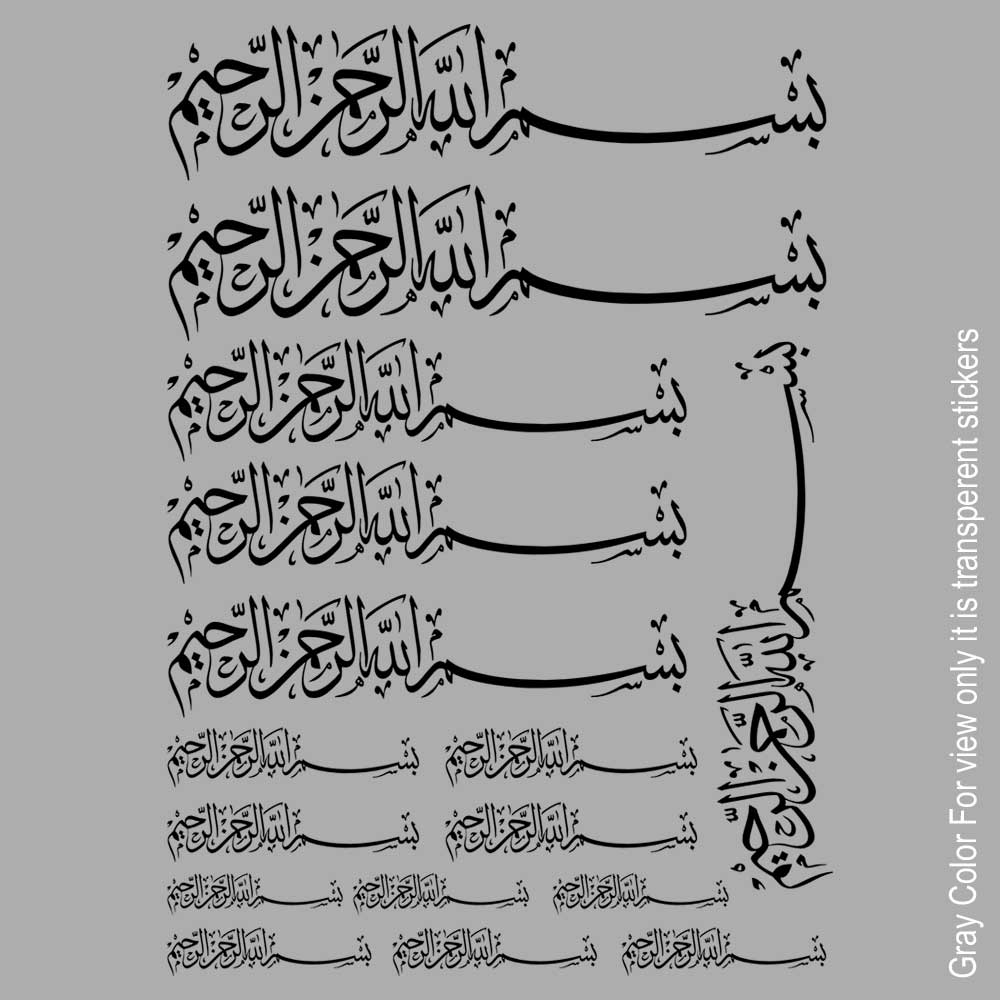 بسم الله الرحمن الرحيم
بسم الله الرحمن الرحيم
بسم الله الرحمن الرحيم
بسم الله الرحمن الرحيم
بسم الله الرحمن الرحيم
بسم الله الرحمن الرحيم
بسم الله الرحمن الرحيم بسم الله الرحمن الرحيم
بسم الله الرحمن الرحيم بسم الله الرحمن الرحيم
بسم الله الرحمن الرحيم بسم الله الرحمن الرحيم بسم الله الرحمن الرحيم
بسم الله الرحمن الرحيم بسم الله الرحمن الرحيم بسم الله الرحمن الرحيم
Gray Color For view only it is transperent stickers